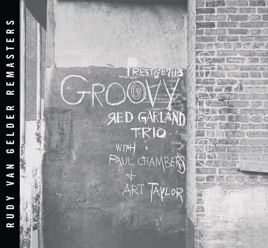 RUDY VAN GELDER REMASTERS
PRESTIGE 7113
GROOVY
RED GARLAND
TRIO
WITH
PAUL CHAMBERS
+
ART TAYLOR